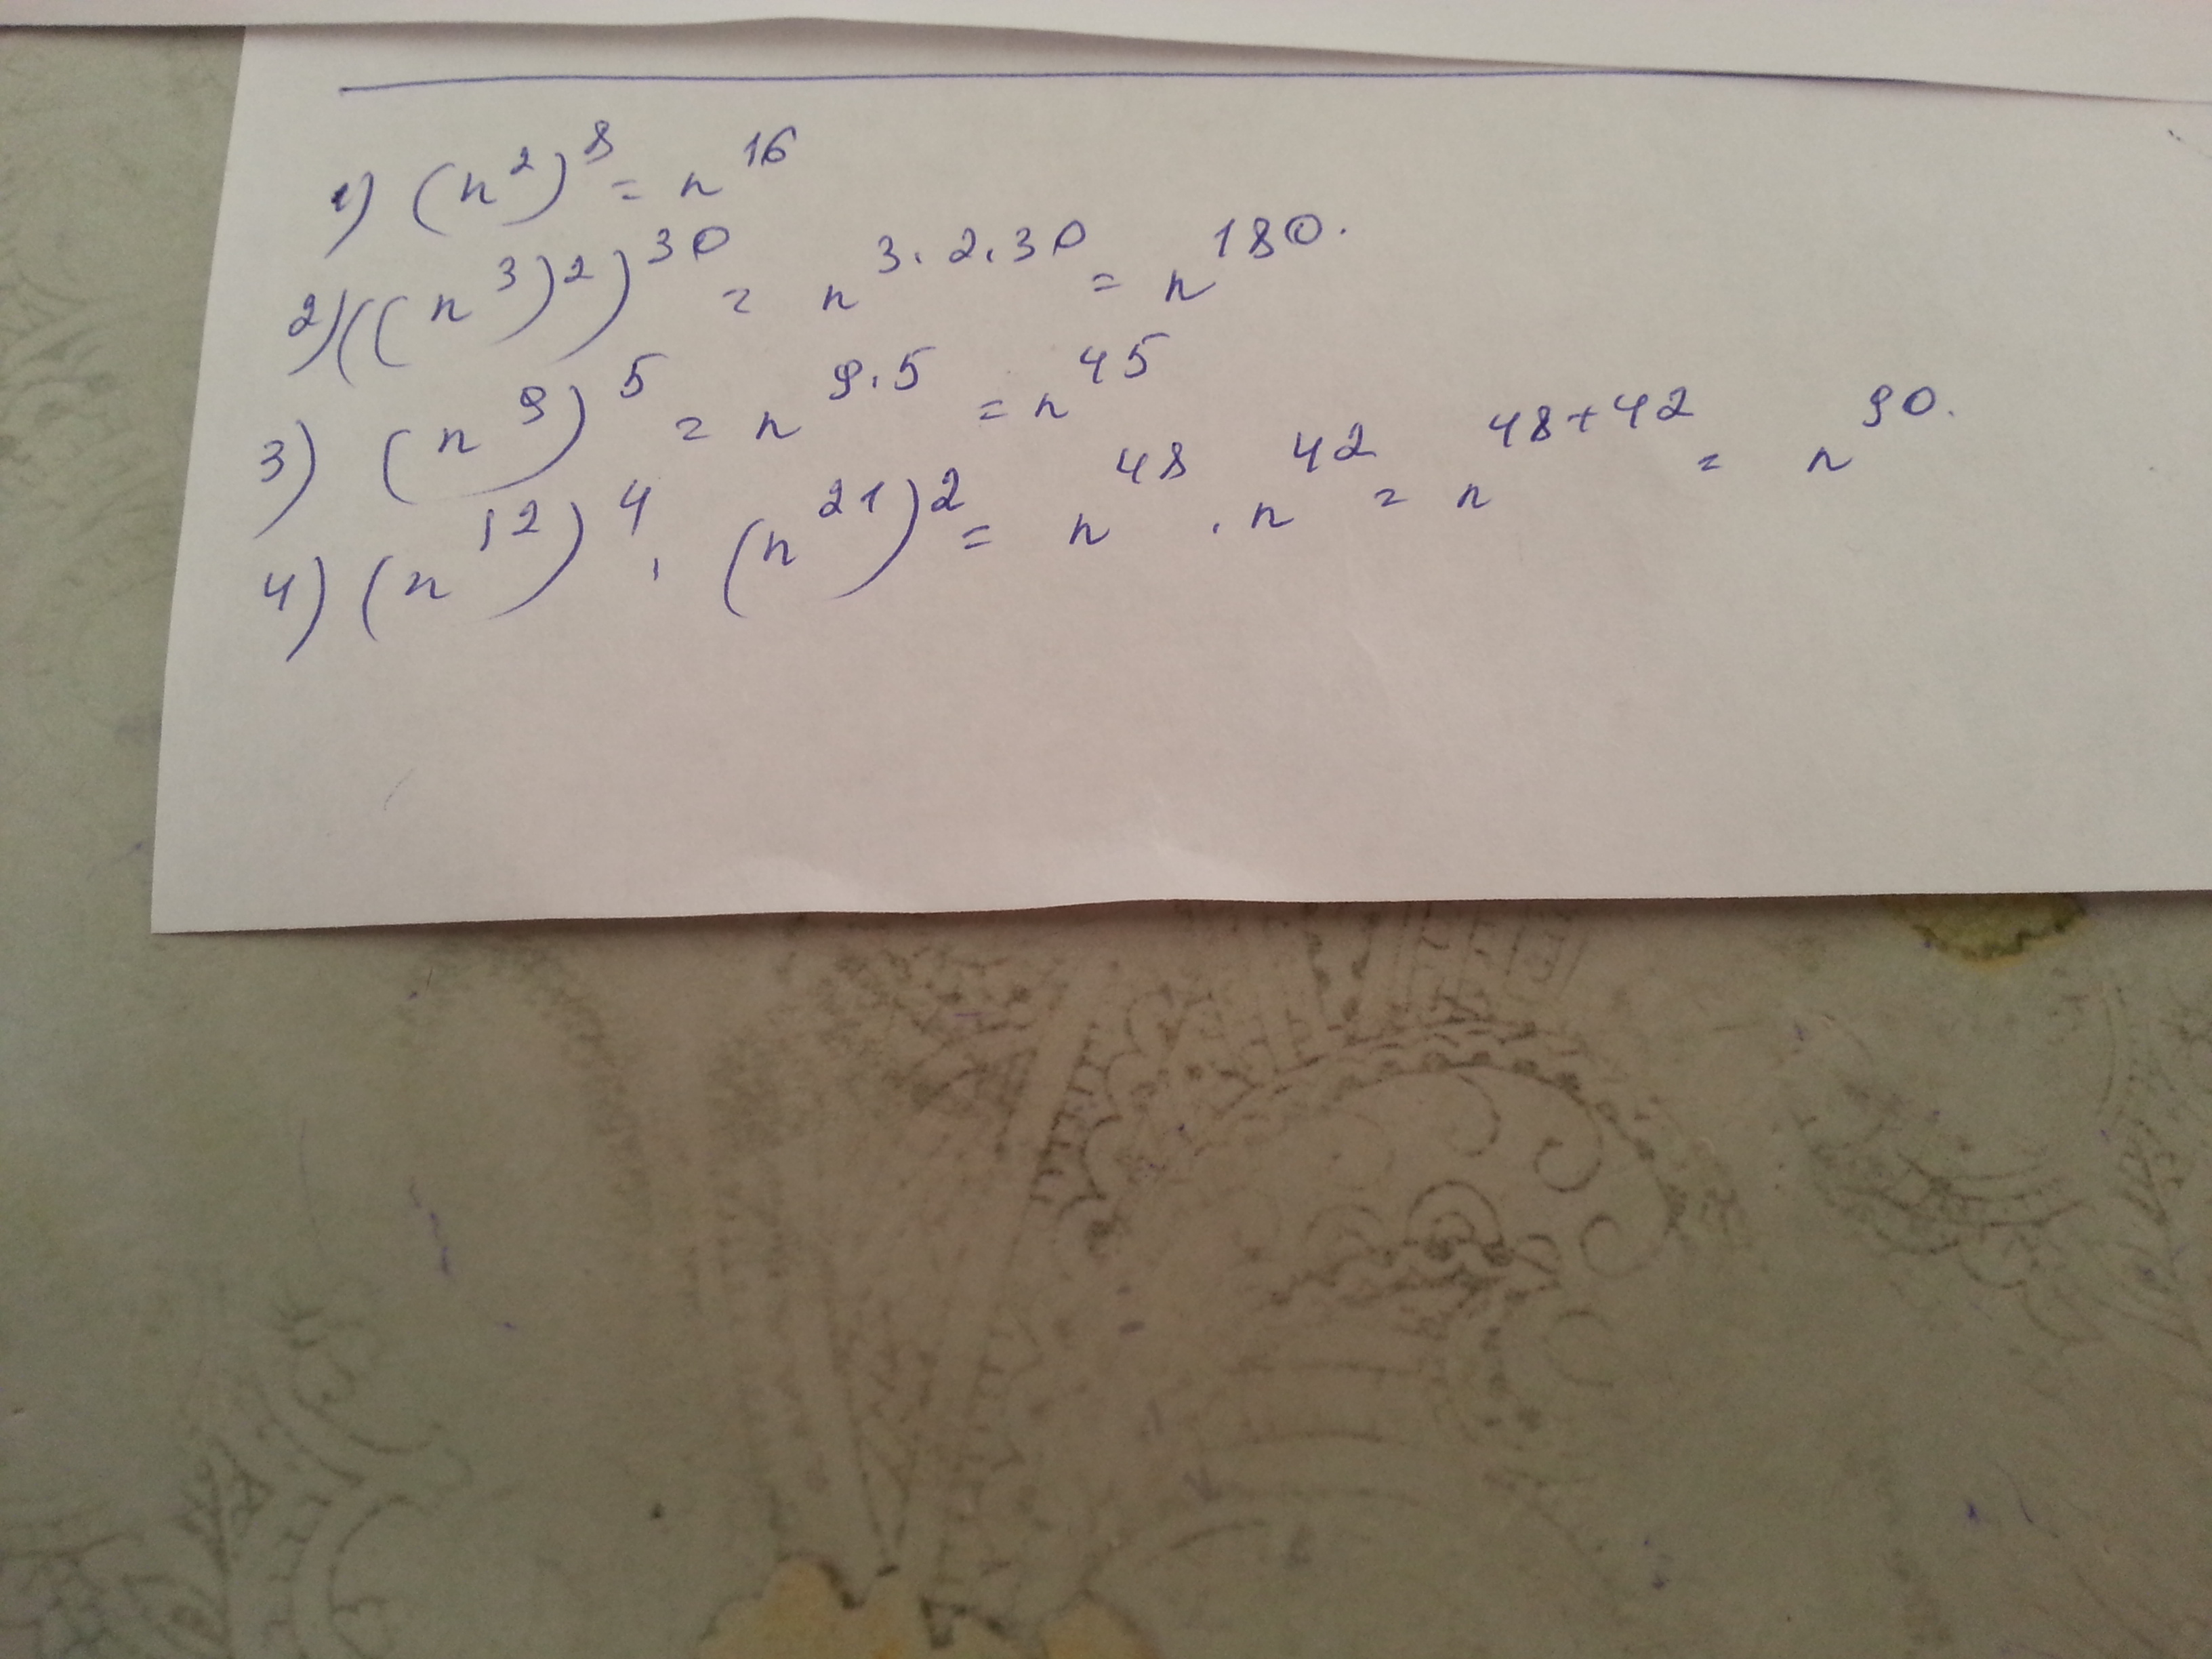 1) (n²)⁸ = n¹⁶
2) ((n³)²)³⁰ = n³·²·³⁰ = n¹⁸⁰.
3) (n⁹)⁵ = n⁹·⁵ = n⁴⁵
4) (n¹²)⁴ · (n²¹)² = n⁴⁸ · n⁴² = n⁴⁸⁺⁴² = n⁹⁰.